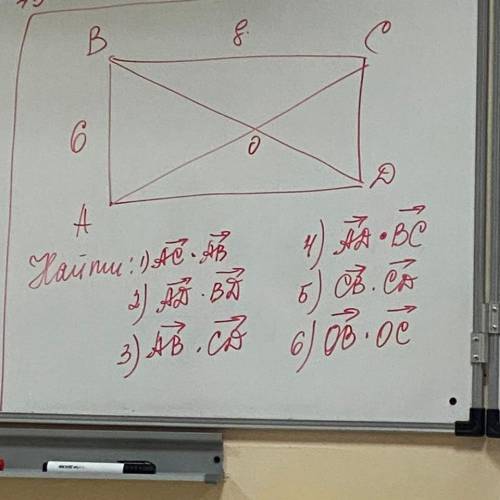 B 8 C
6
O
A D
Найти: 1) AC · AB
2) AD · BD
3) AB · CD
4) AD · BC
5) CB · CD
6) OB · OC